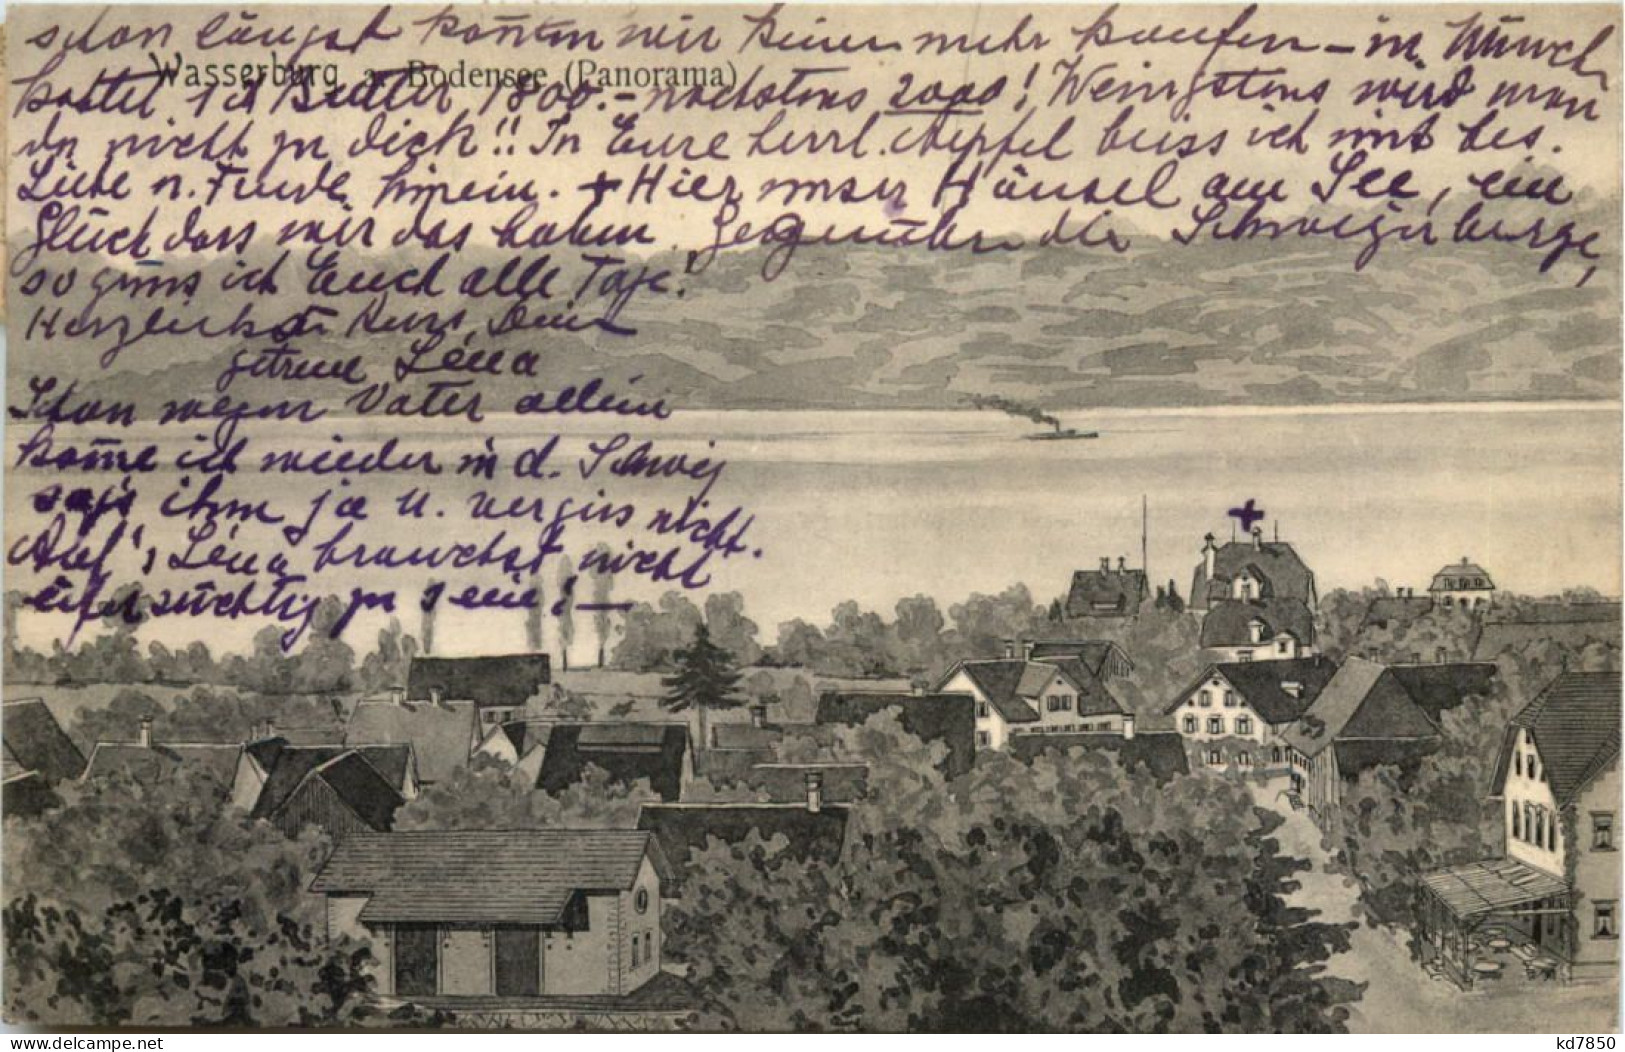 schon längst können wir keine mehr kaufen – in Münch.
Wasserburg a. Bodensee (Panorama)
kostet 1 ℔ Butter 1800.– nächstens 2000! Wenigstens wird man
da nicht zu dick!! In Eure herrl. Aepfel beiss ich mit bes.
Liebe u. Freude hinein. + Hier unser Häusel am See, ein
Glück dass wir das haben. Gegenüber die Schweizerberge,
so grüss ich Euch alle Tage!
Herzlichst Deine
getreue Léna
Schon wegen Vater allein
kome ich wieder in d. Schweiz
sag's ihm ja u. vergiss nicht.
Léna brauchst nicht
eifersüchtig zu sein! –
kd7850